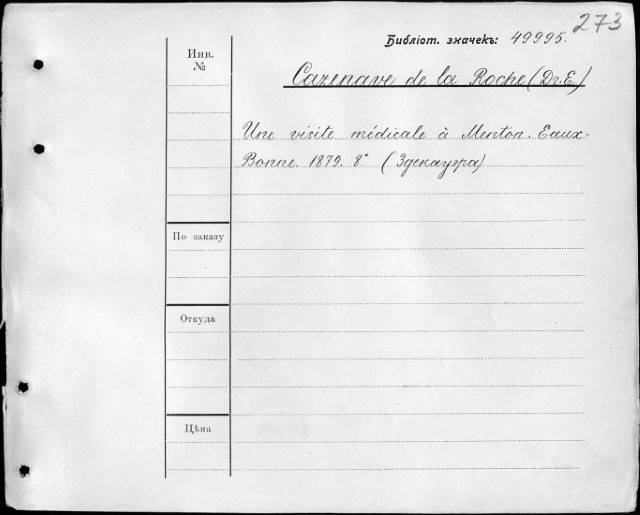 273
Библіот. значекъ: 49995.
Инв.
№
Cazenave de la Roche (Dr. E.)
Une visite médicale à Menton. Eaux-
Bonne. 1879. 8° (Здекауэра)
По заказу
Откуда
Цѣна